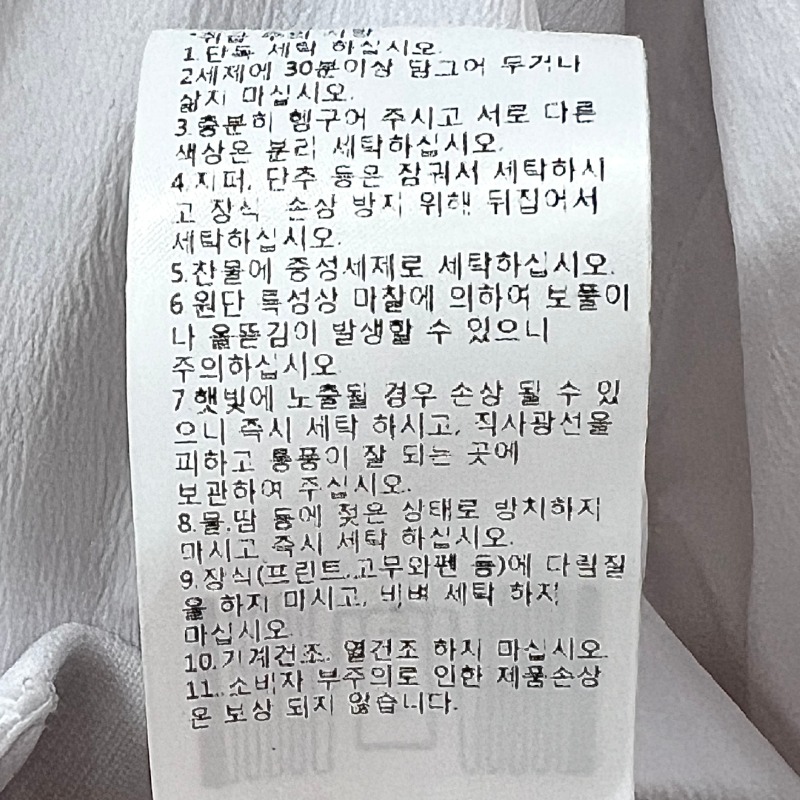 *취급 주의 사항
1.단독 세탁 하십시오.
2세제에 30분이상 담그어 두거나
삶지 마십시오.
3.충분히 헹구어 주시고 서로 다른
색상은 분리 세탁하십시오.
4.지퍼, 단추 등은 잠궈서 세탁하시
고 장식 손상 방지 위해 뒤집어서
세탁하십시오.
5.찬물에 중성세제로 세탁하십시오.
6.원단 특성상 마찰에 의하여 보풀이
나 올뜯김이 발생할 수 있으니
주의하십시오
7.햇빛에 노출될 경우 손상 될 수 있
으니 즉시 세탁 하시고, 직사광선을
피하고 통풍이 잘 되는 곳에
보관하여 주십시오.
8.물,땀 등에 젖은 상태로 방치하지
마시고 즉시 세탁 하십시오.
9.장식(프린트,고무와펜 등)에 다림질
을 하지 마시고, 비벼 세탁 하지
마십시오.
10.기계건조, 열건조 하지 마십시오.
11..소비자 부주의로 인한 제품손상
은 보상 되지 않습니다.